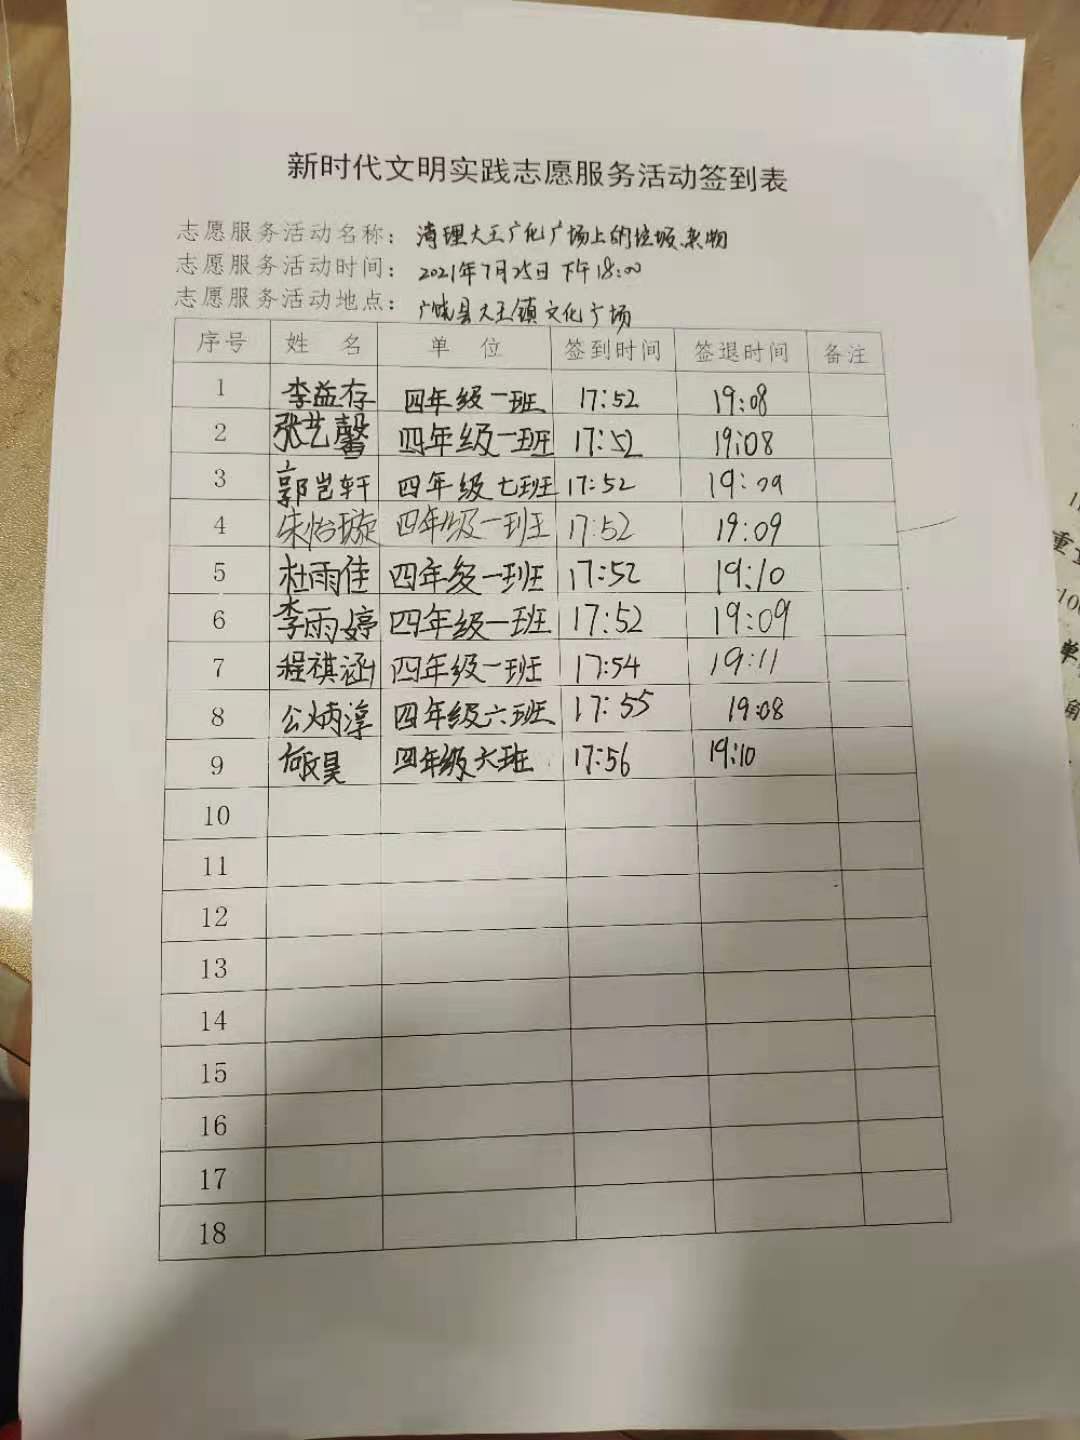 新时代文明实践志愿服务活动签到表
志愿服务活动名称：清理大王广化广场上的垃圾杂物
志愿服务活动时间：2021年7月25日下午18:00
志愿服务活动地点：广饶县大王镇文化广场
序号 姓 名 单 位 签到时间 签退时间 备注
1 李益存 四年级一班 17:52 19:08
2 张艺馨 四年级一班 17:52 19:08
3 郭岂轩 四年级七班 17:52 19:09
4 朱怡璇 四年级一班 17:52 19:09
5 杜雨佳 四年级一班 17:52 19:10
6 李雨婷 四年级一班 17:52 19:09
7 程祺涵 四年级一班 17:54 19:11
8 公炳淳 四年级六班 17:55 19:08
9 四年级六班 17:56 19:10
10
11
12
13
14
15
16
17
18